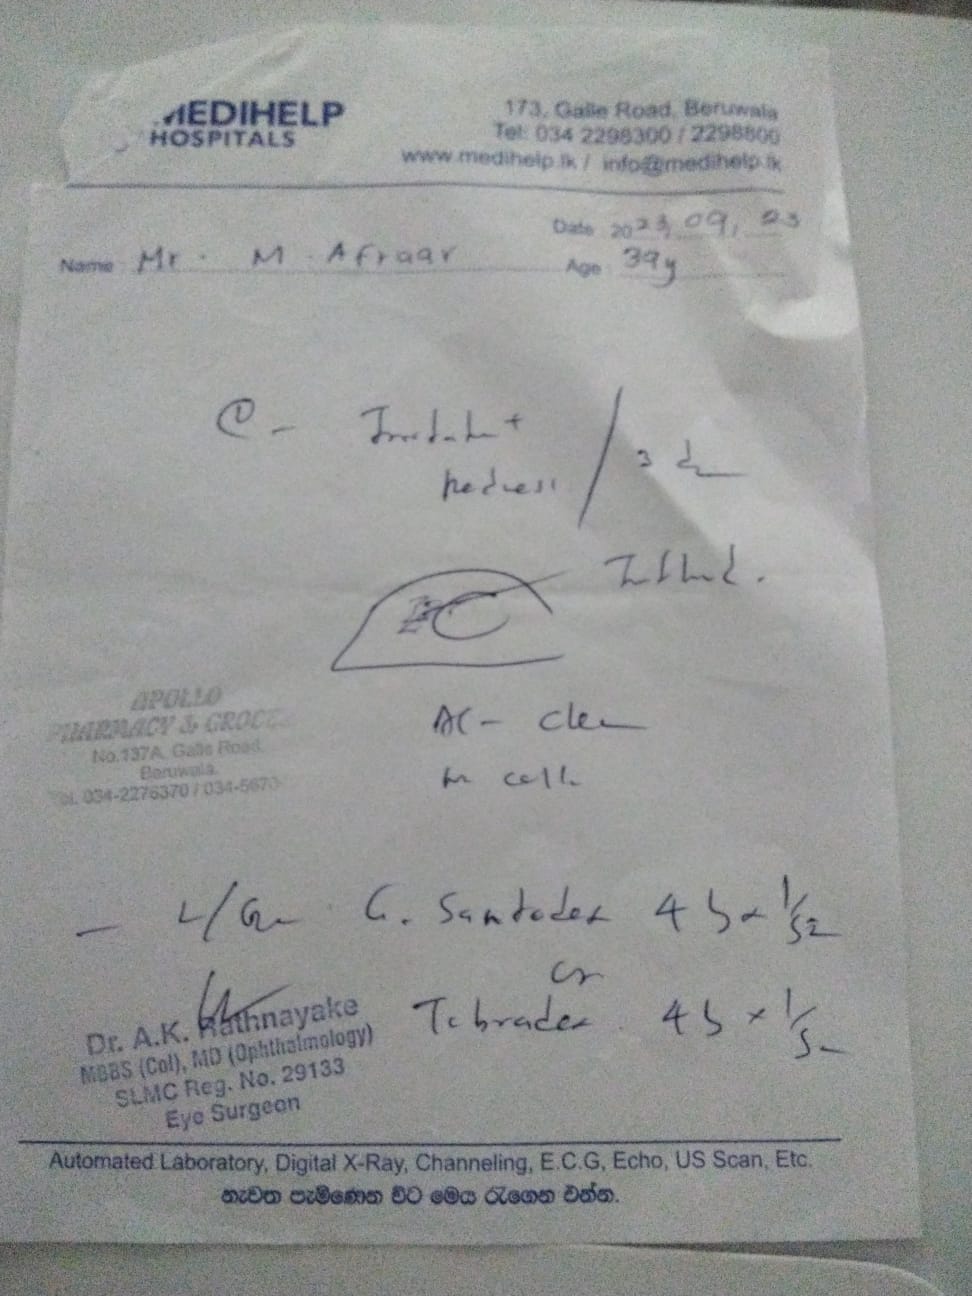 MEDIHELP
HOSPITALS
173, Galle Road, Beruwala
Tel: 034 2298300 / 2298800
www.medihelp.lk / info@medihelp.lk
Date 2023, 09, 23
Name Mr. M. Afraar
Age 39y
Redness / 3
APOLLO
PHARMACY &
No.137A, Galle Road,
Beruwala.
Tel. 034-2276370 / 034-5673
AC - clear
no cells
G. Santodex 4
or
Tobradex 4
Dr. A.K. Rathnayake
MBBS (Col), MD (Ophthalmology)
SLMC Reg. No. 29133
Eye Surgeon
Automated Laboratory, Digital X-Ray, Channeling, E.C.G, Echo, US Scan, Etc.
නැවත පැමිණෙන විට මෙය රැගෙන එන්න.